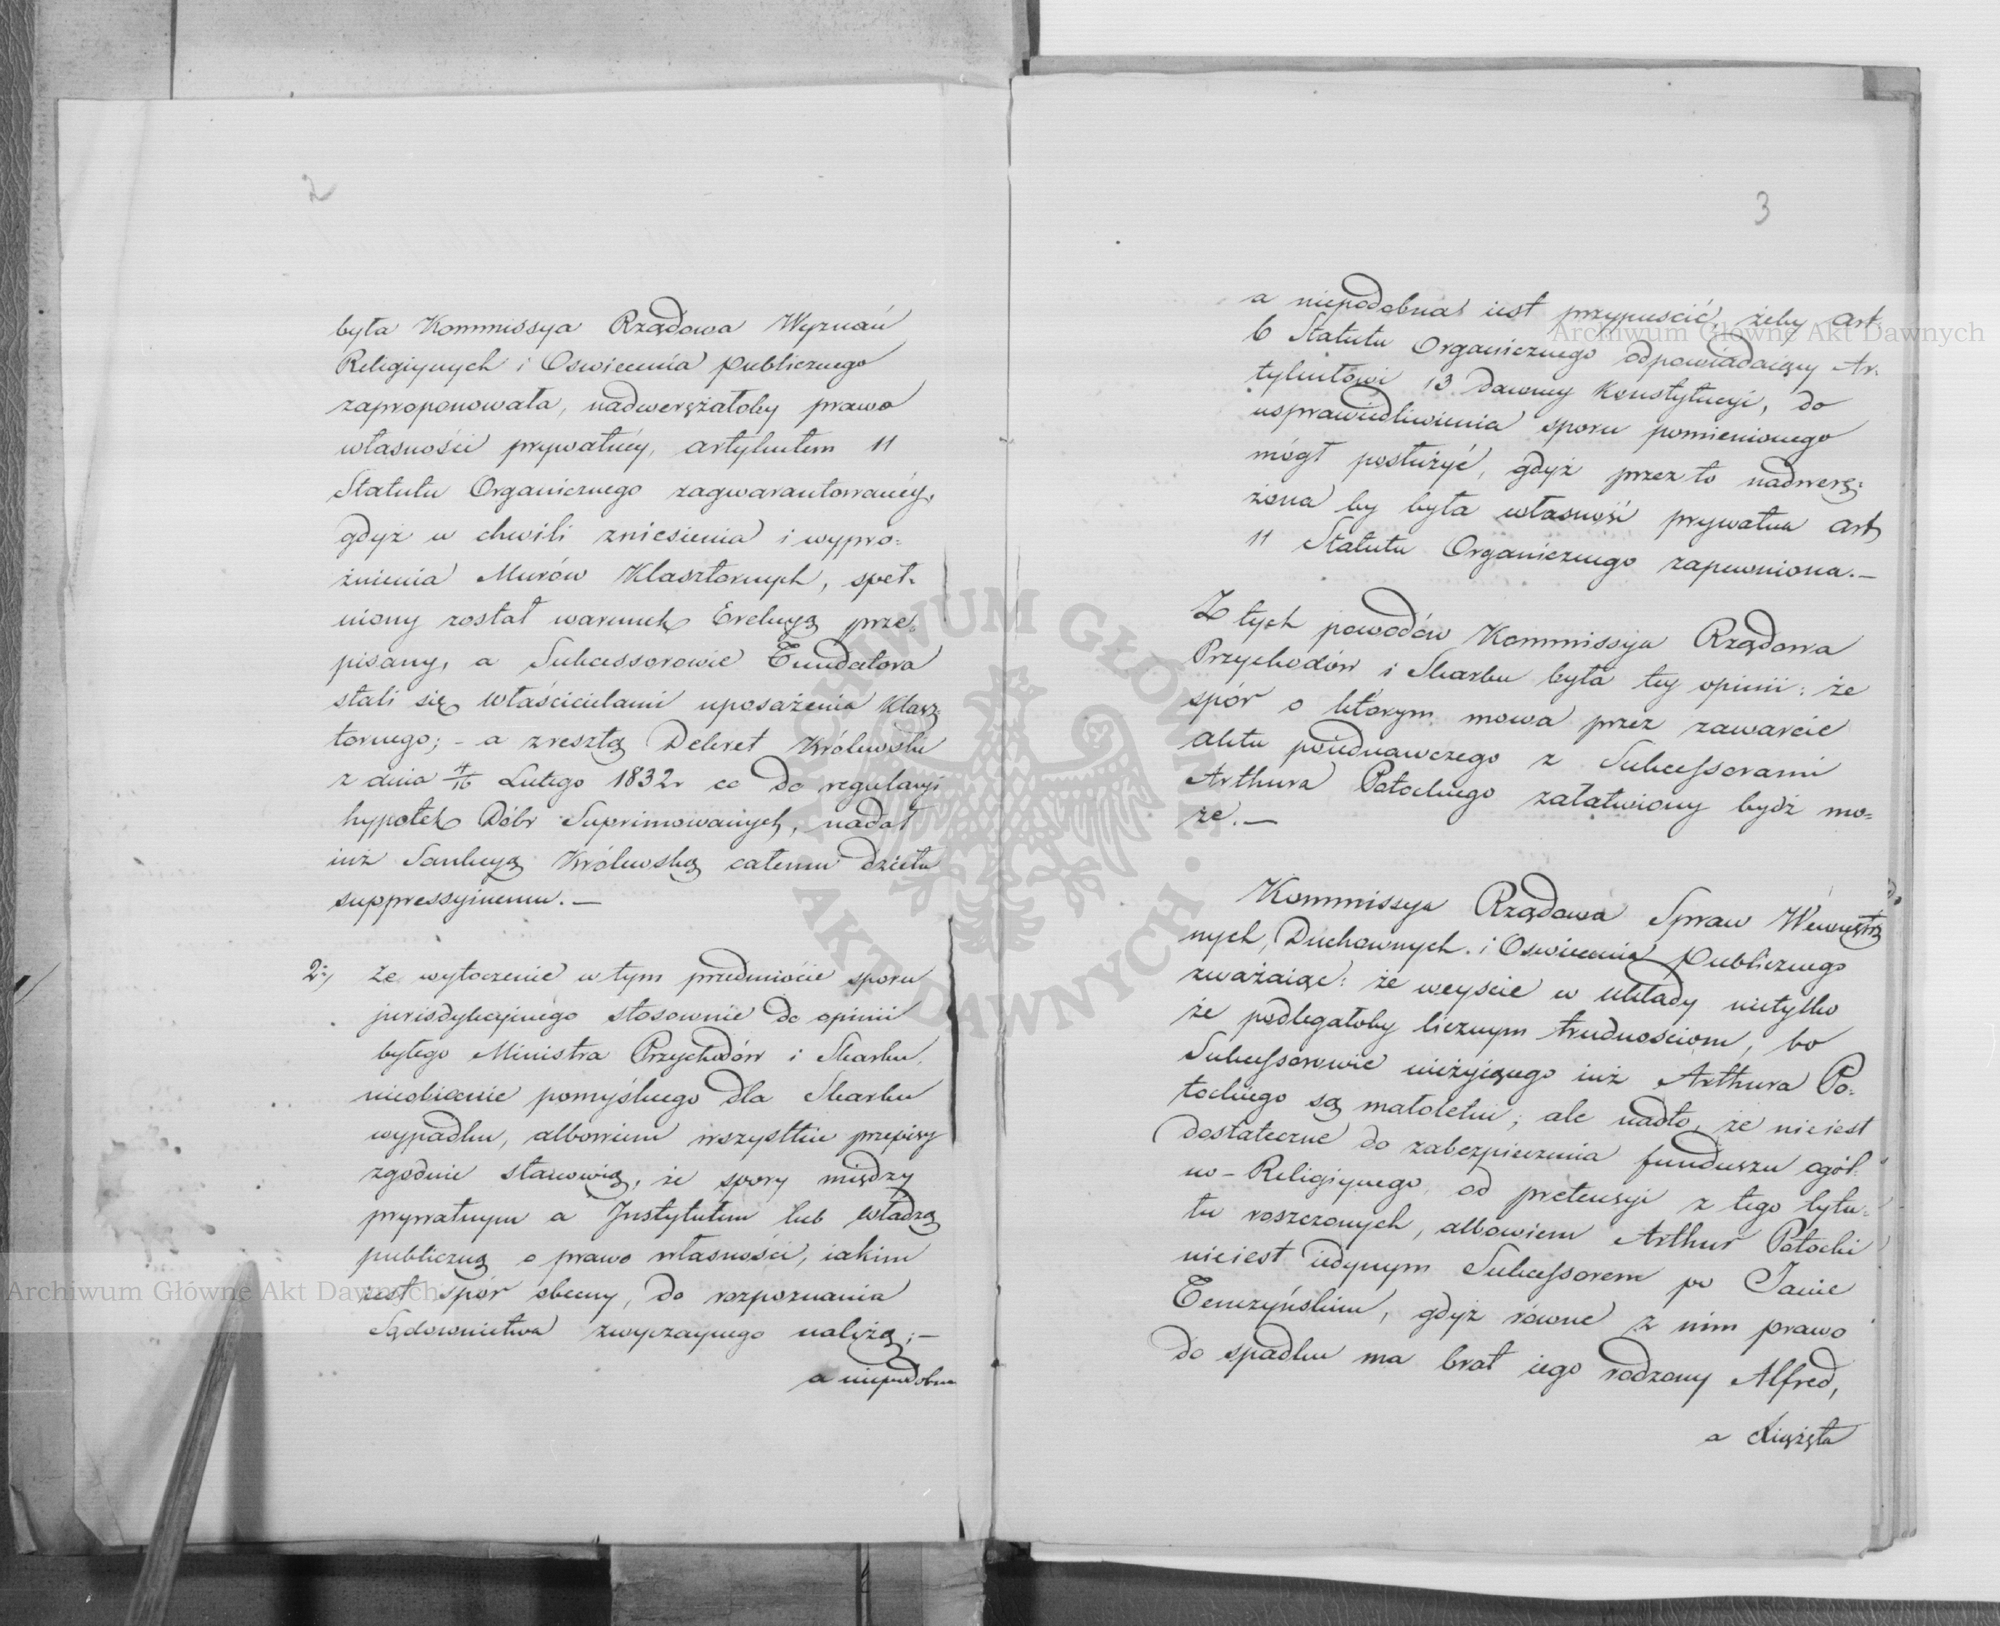 2
była Kommissya Rządowa Wyznań
Religiynych i Oswiecenia publicznego
zaproponowała, nadwerężałoby prawo
własności prywatnéy, artykułem 11
Statutu Organicznego zagwarantowanéy,
gdyż w chwili zniesienia i wypro=
żnienia Murów Klasztornych, speł=
niony został warunek Erekcyą prze=
pisany, a Sukcessorowie Fundatora
stali się właścicielami uposażenia klasz=
tornego; - a zresztą Dekret Królewski
z dnia 4/16 Lutego 1832r co do regulacyi
hypotek Dóbr Suprimowanych, nadał
iuż Sankcyą Królewską całemu dziełu
suppressyinemu. —
2; że wytoczenie w tym przedmiocie sporu
jurisdykcyinego stosownie do opinii
byłego Ministra Przychodów i Skarbu,
nieobiecuie pomyślnego dla Skarbu
wypadku, albowiem wszystkie przepisy
zgodnie stanowią, że spory między
prywatnym a Jnstytutem lub władzą
publiczną o prawo własności, iakim
iest spór obecny, do rozpoznania
Sądownictwa zwyczaynego należą; —
a niepodobna
3
a niepodobna iest przypuścić, żeby art.
6 Statutu Organicznego odpowiadaiący Ar=
tykułowi 13 dawney Konstytucyi, do
usprawiedliwienia sporu pomienionego
mógł posłużyć, gdyż przez to nadwerę=
żona by była własność prywatna art
11 Statutu Organicznego zapewniona. —
Z tych powodów Kommissya Rządowa
Przychodów i Skarbu była tey opinii: że
spór o którym mowa przez zawarcie
aktu poiednawczego z Sukcessorami
Arthura Potockiego załatwiony bydź mo=
że. —
Kommissya Rządowa Spraw Wewnętrz
nych, Duchownych i Oswiecenia publicznego
zważaiąc: że weyście w układy nietylko
że podlegałoby licznym trudnościom, bo
Sukcessorowie nieżyiącego iuż Arthura Po=
tockiego są małoletni; ale nadto, że nieiest
dostateczne do zabezpieczenia funduszu ogól=
no - Religiynego, od pretensyi z tego tytu=
łu roszczonych, albowiem Arthur Potocki
nieiest iedynym Sukcessorem po Janie
Tenczyńskim, gdyż równe z nim prawo
do spadku ma brat iego rodzony Alfred,
a Xiążęta
Archiwum Główne Akt Dawnych
Archiwum Główne Akt Dawnych
ARCHIWUM GŁÓWNE · AKT DAWNYCH ·